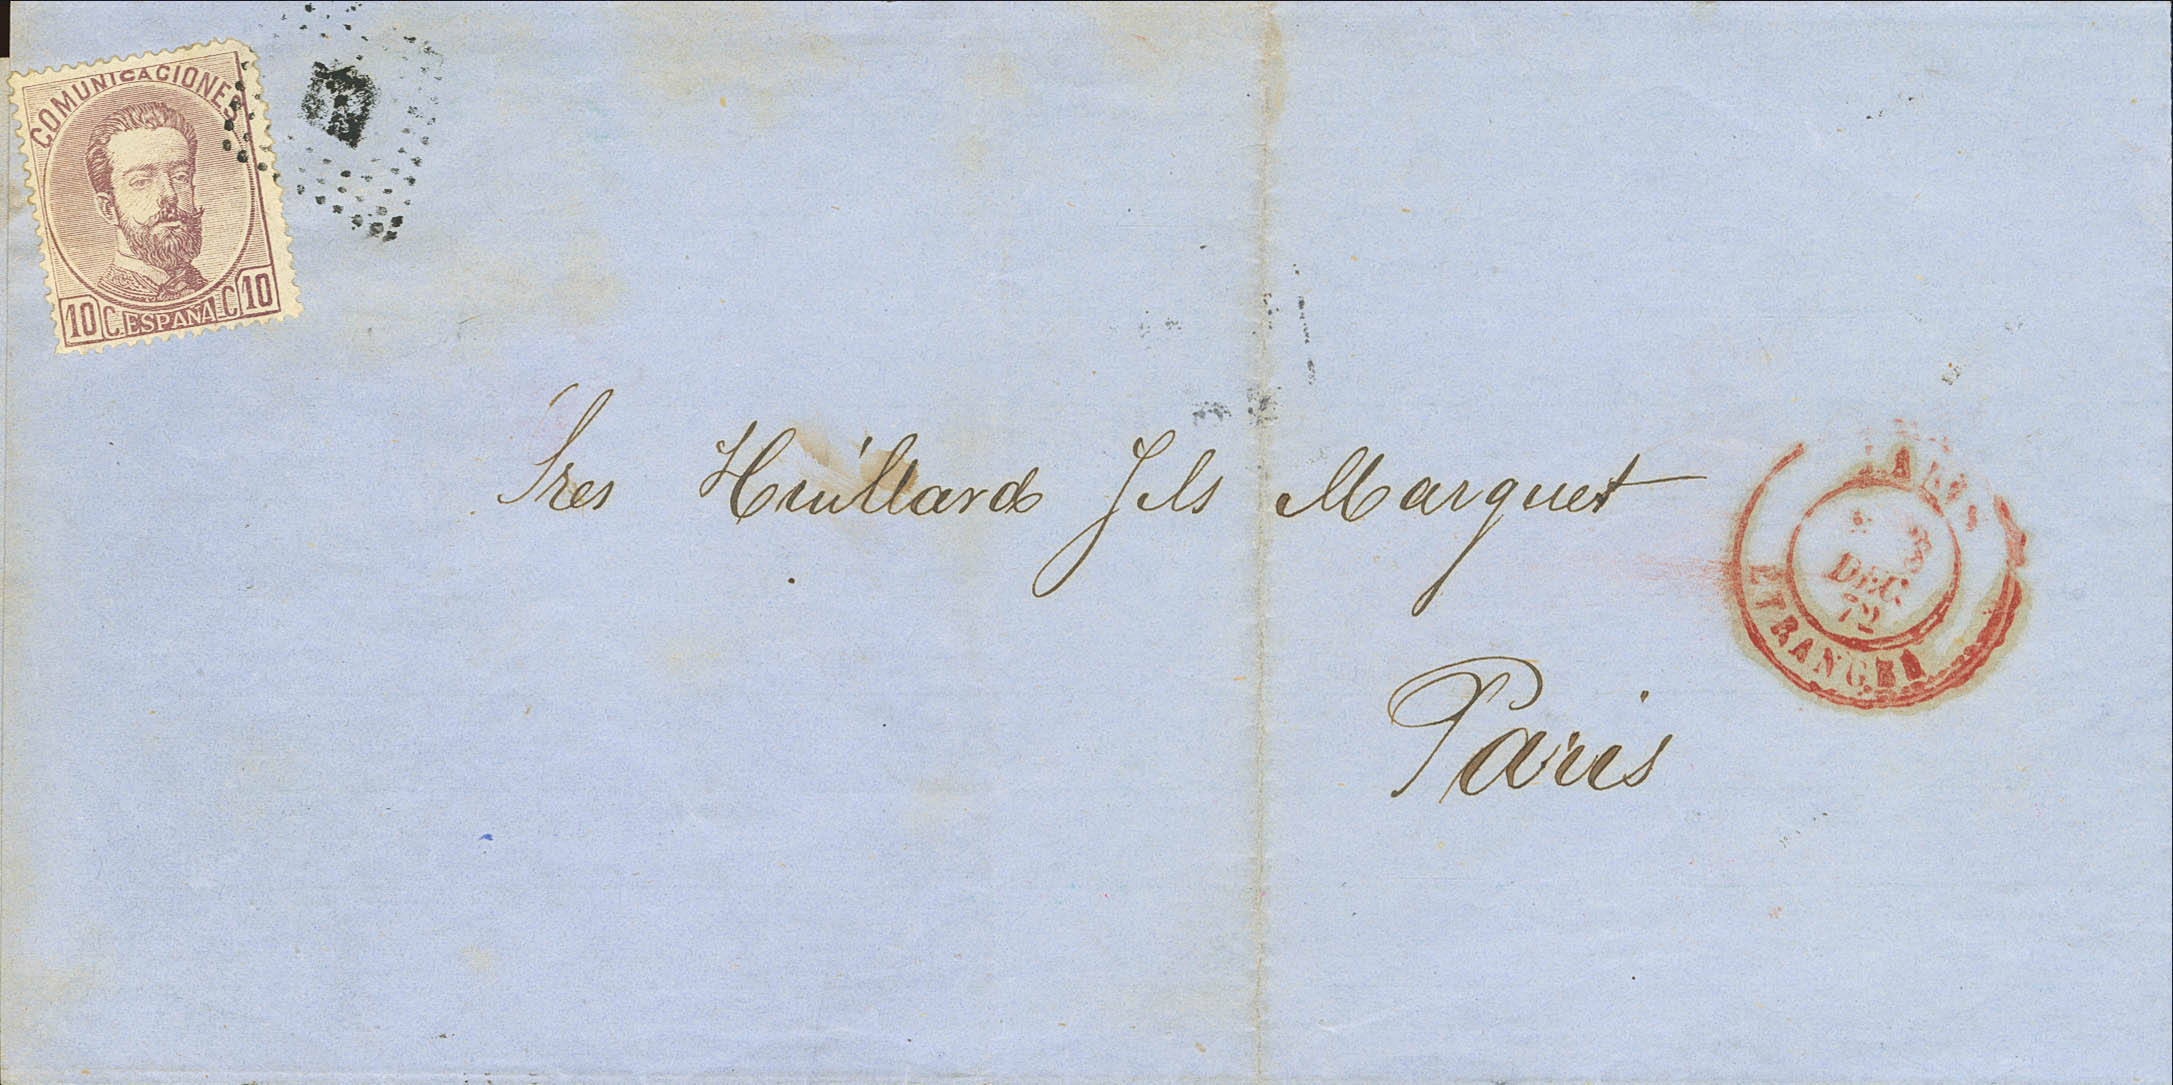 COMUNICACIONES
10 C. ESPAÑA C. 10
Sres Huillard Fils Marquet
Paris
PARIS
3
DEC.
72
ETRANGER